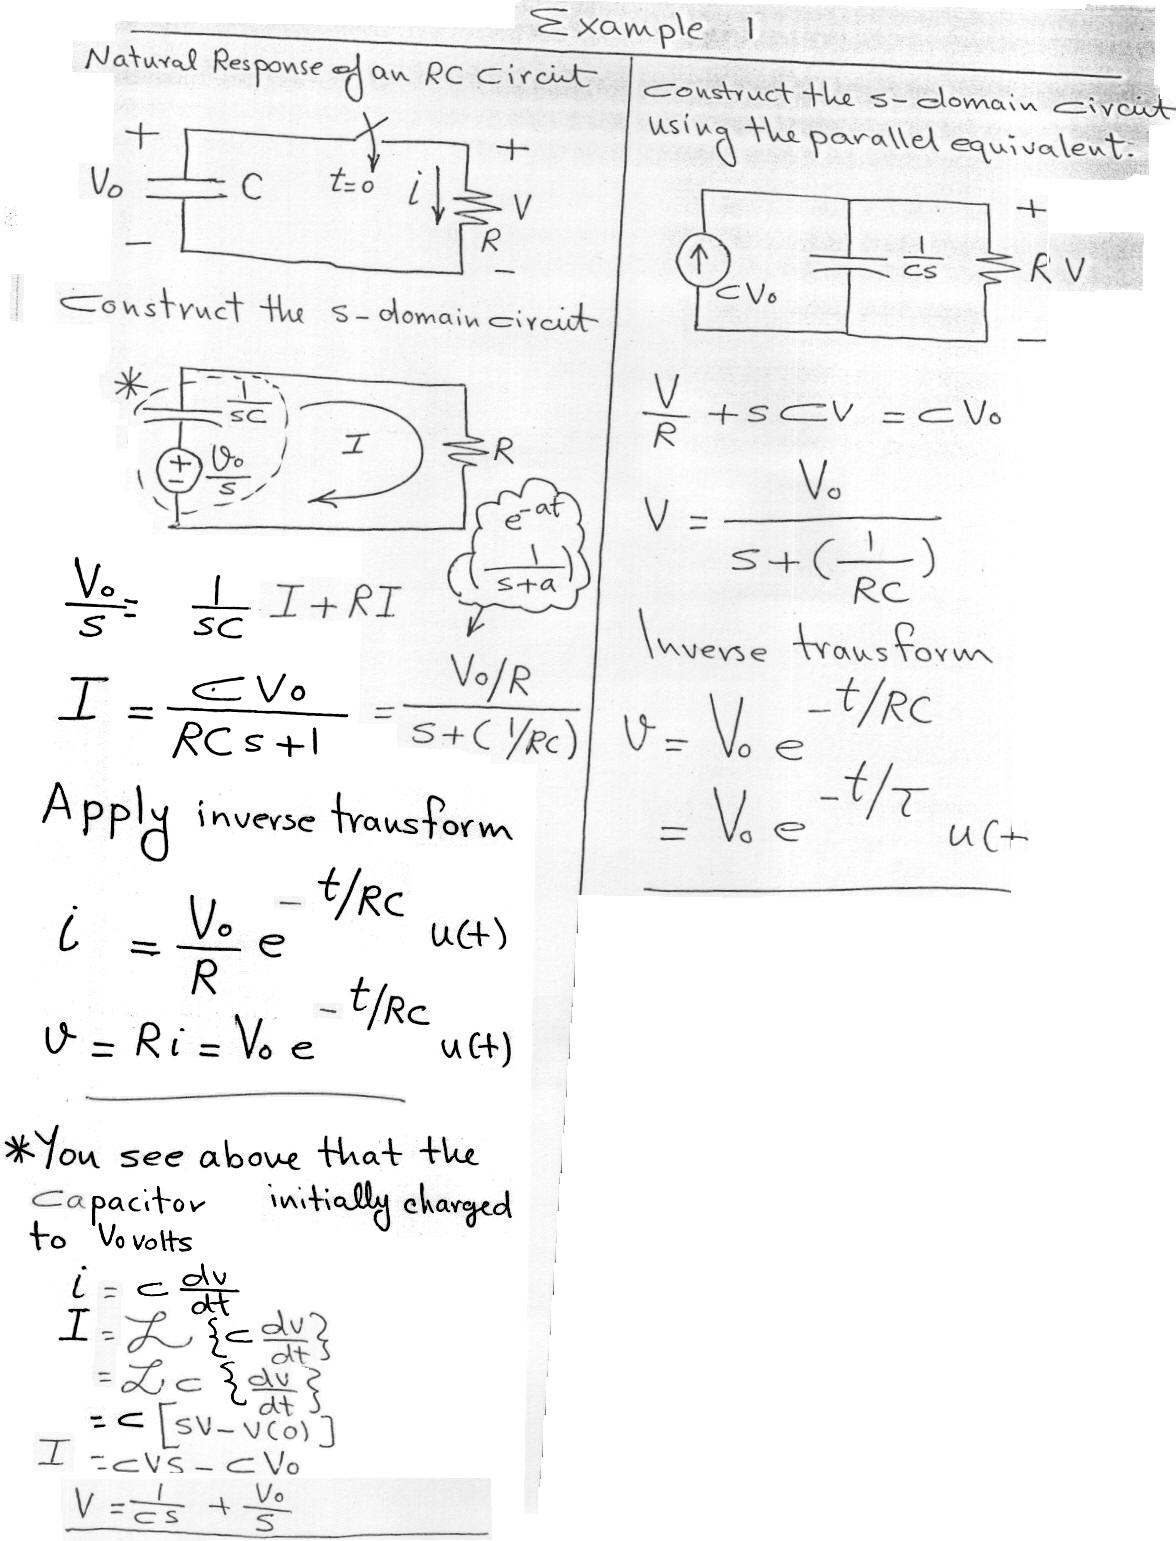 Example 1
Natural Response of an RC Circuit
+
V₀
C
t=0
i
+
V
R
−
−
Construct the s-domain circuit
*
1/sC
+
−
v₀/s
I
R
e^-at
(1/s+a)
V₀/s = 1/sC I + RI
I = CV₀/RCs+1 = V₀/R / s+(1/RC)
Apply inverse transform
i = V₀/R e^-t/RC u(t)
v = Ri = V₀ e^-t/RC u(t)
*You see above that the
capacitor initially charged
to V₀ volts
i = C dv/dt
I = ℒ {C dv/dt}
= ℒ C {dv/dt}
= C [SV - V(0)]
I = CVS - CV₀
V = 1/CS + V₀/S
Construct the s-domain circuit
using the parallel equivalent.
+
CV₀
1/CS
R V
−
V/R + SCV = CV₀
V = V₀ / S+(1/RC)
Inverse transform
v = V₀ e^-t/RC
= V₀ e^-t/τ u(t